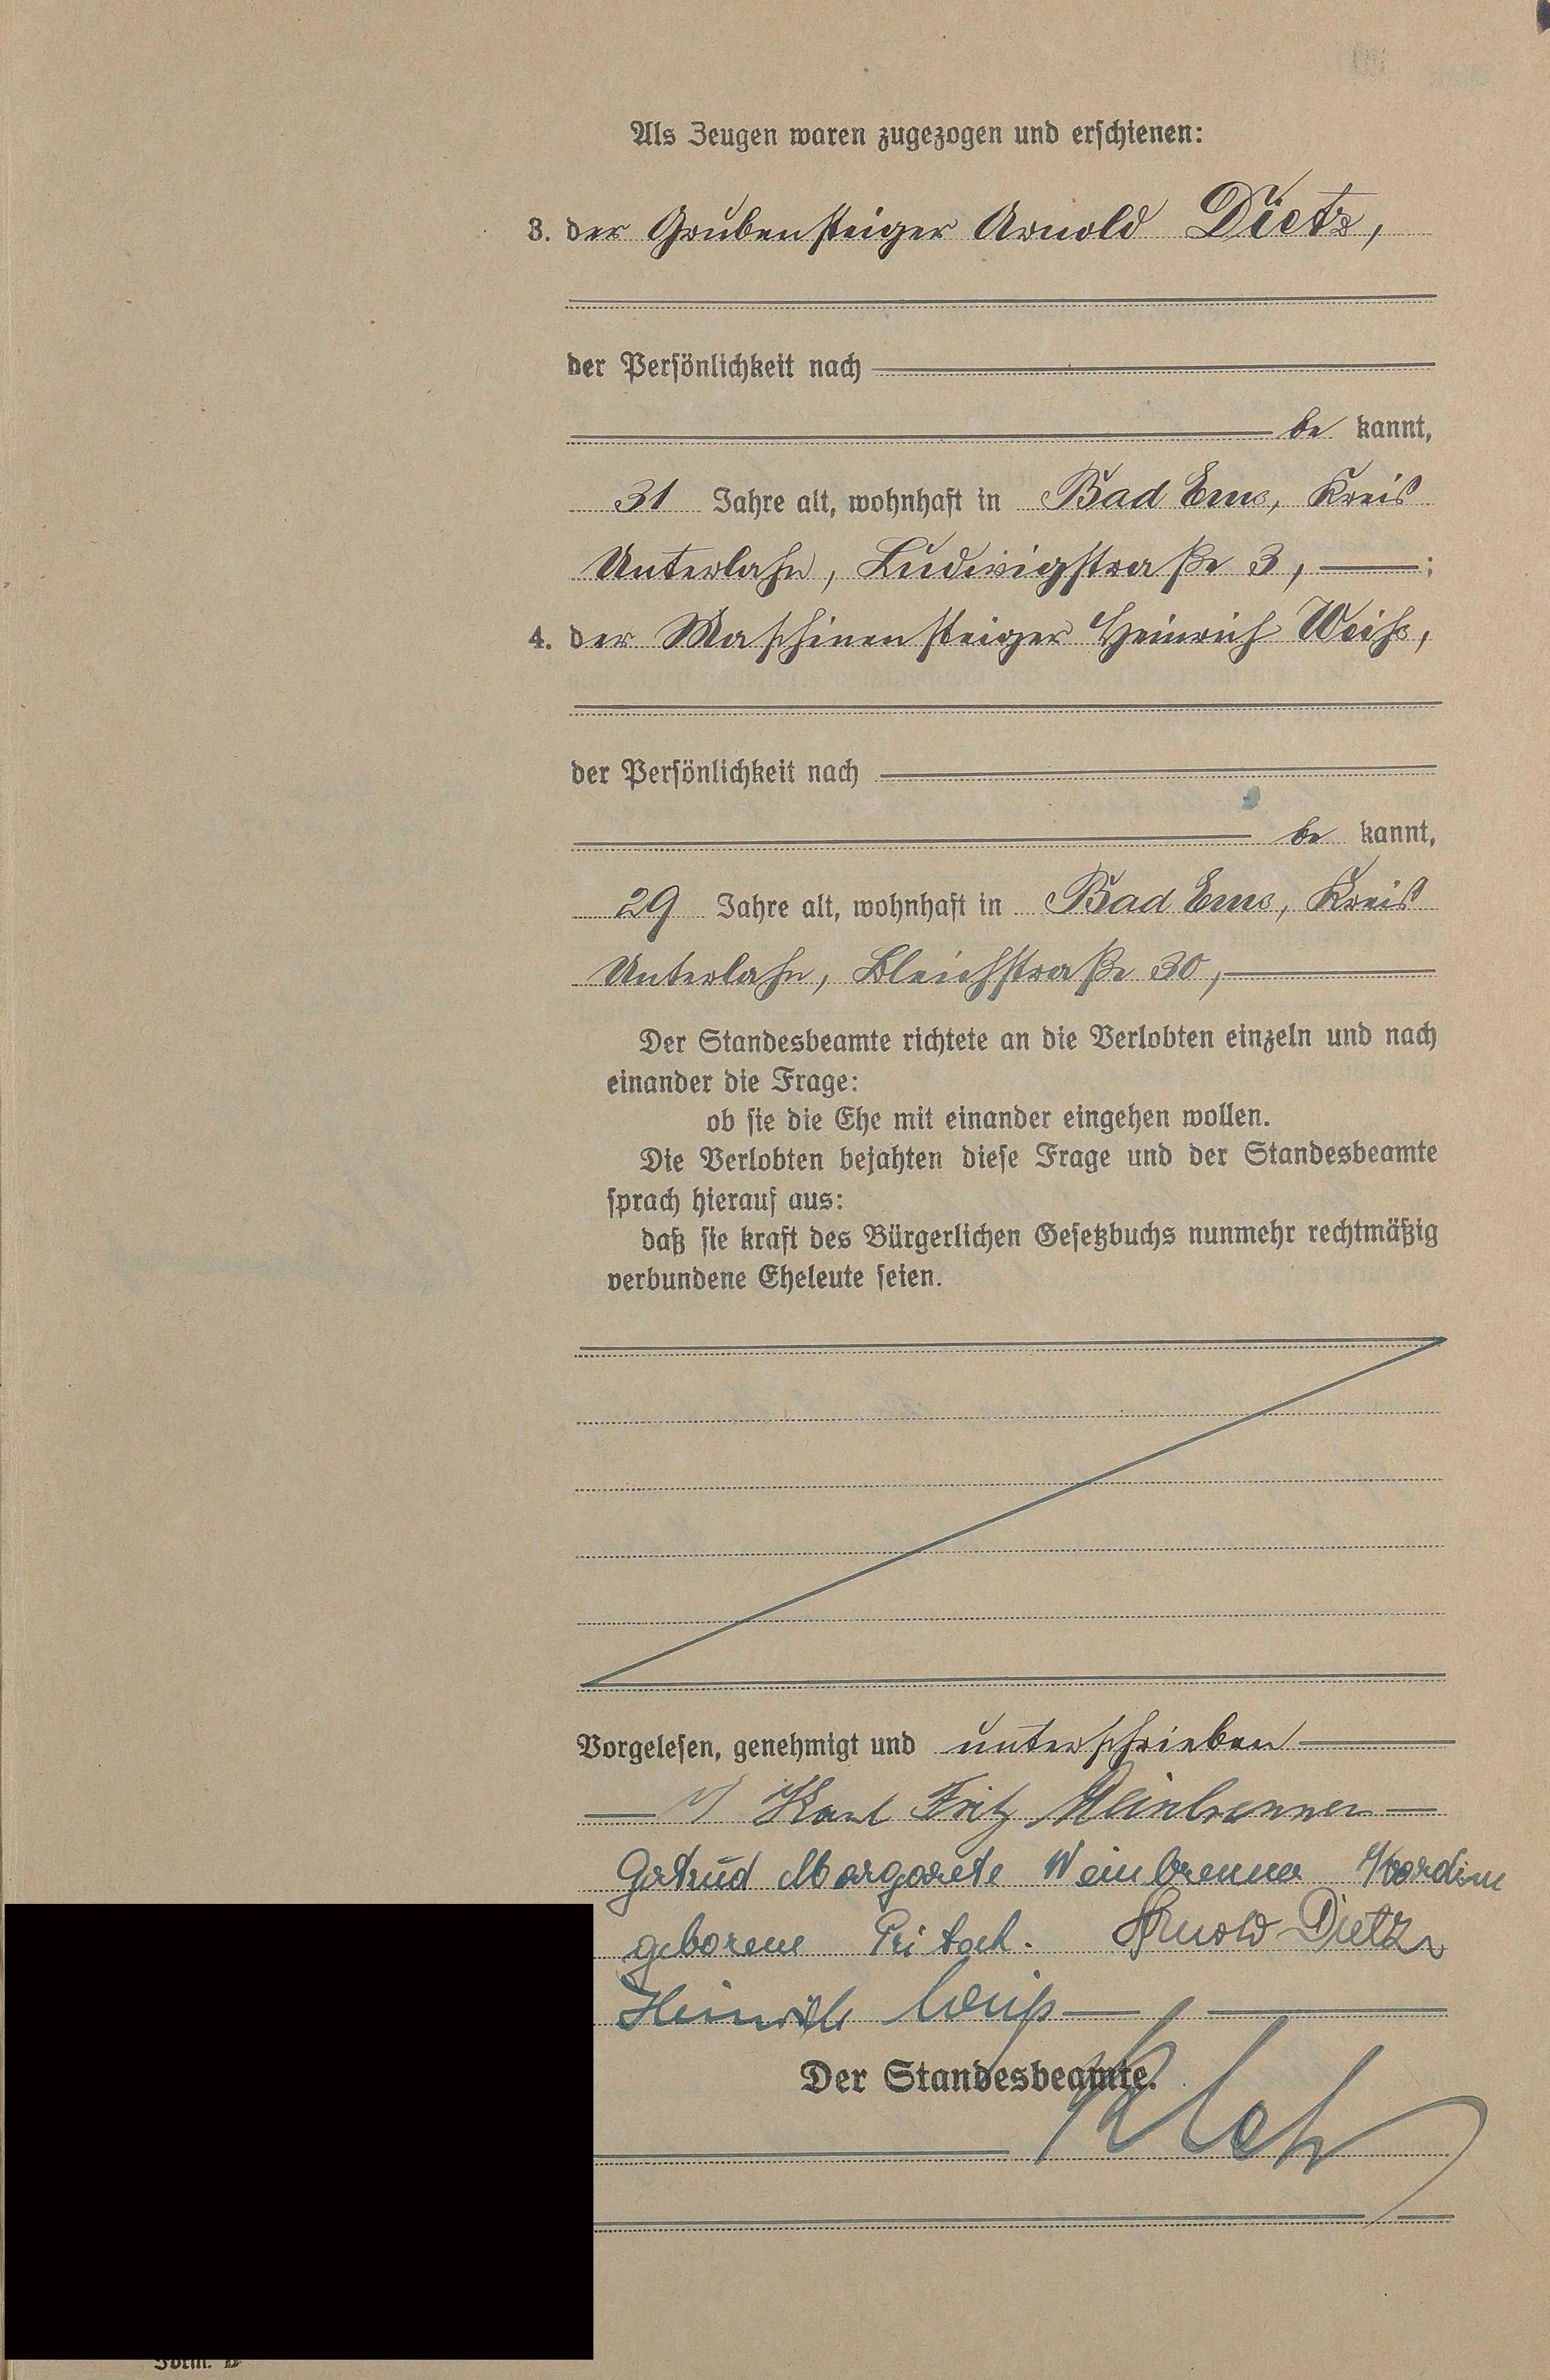 Als Zeugen waren zugezogen und erschienen:
3. der Grubensteiger Arnold Dietz,
der Persönlichkeit nach
be kannt,
31 Jahre alt, wohnhaft in Bad Ems, Kreis
Unterlahn, Ludwigstraße 3, ;
4. der Maschinensteiger Heinrich
der Persönlichkeit nach
be kannt,
29 Jahre alt, wohnhaft in Bad Ems, Kreis
Unterlahn, Bleichstraße 30,
Der Standesbeamte richtete an die Verlobten einzeln und nach
einander die Frage:
ob sie die Ehe mit einander eingehen wollen.
Die Verlobten bejahten diese Frage und der Standesbeamte
sprach hierauf aus:
daß sie kraft des Bürgerlichen Gesetzbuchs nunmehr rechtmäßig
verbundene Eheleute seien.
Vorgelesen, genehmigt und unterschrieben
Karl Fritz Weinbrenner
Gertrud Margarete Weinbrenner
geborene Arnold Dietz
Heinrich
Der Standesbeamte.
Form.